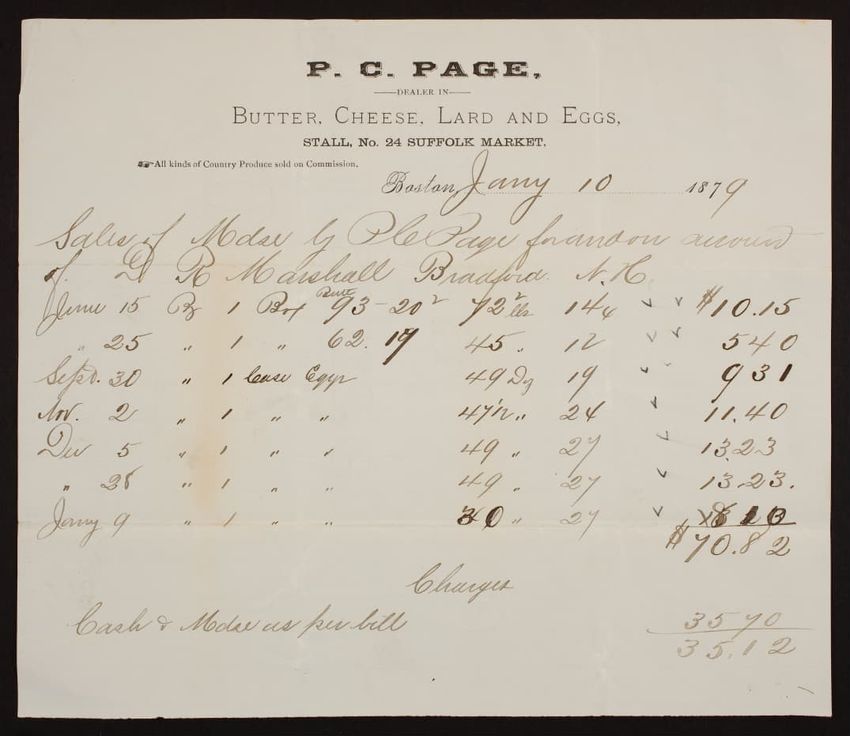 P. C. PAGE,
DEALER IN
BUTTER, CHEESE, LARD AND EGGS,
STALL, No. 24 SUFFOLK MARKET.
All kinds of Country Produce sold on Commission.
Boston, Jany 10 1879
Sales of Mdse by P C Page for and on account
of D R Marshall Bradford N.H.
June 15 By 1 Box Butt 93-20 72 lbs 14 ✓ ✓ $10.15
" 25 " 1 " 62.17 45 " 12 ✓ ✓ 5 40
Sept. 30 " 1 Case Eggs 49 Dz 19 ✓ 9 31
Nov. 2 " 1 " " 47½ " 24 ✓ 11.40
Dec 5 " 1 " " 49 " 27 ✓ 13.23
" 28 " 1 " " 49 " 27 ✓ 13.23.
Jany 9 " 1 " " 30 " 27 ✓ 8 10
$70.82
Charges
Cash & Mdse as per bill 35 70
35.12